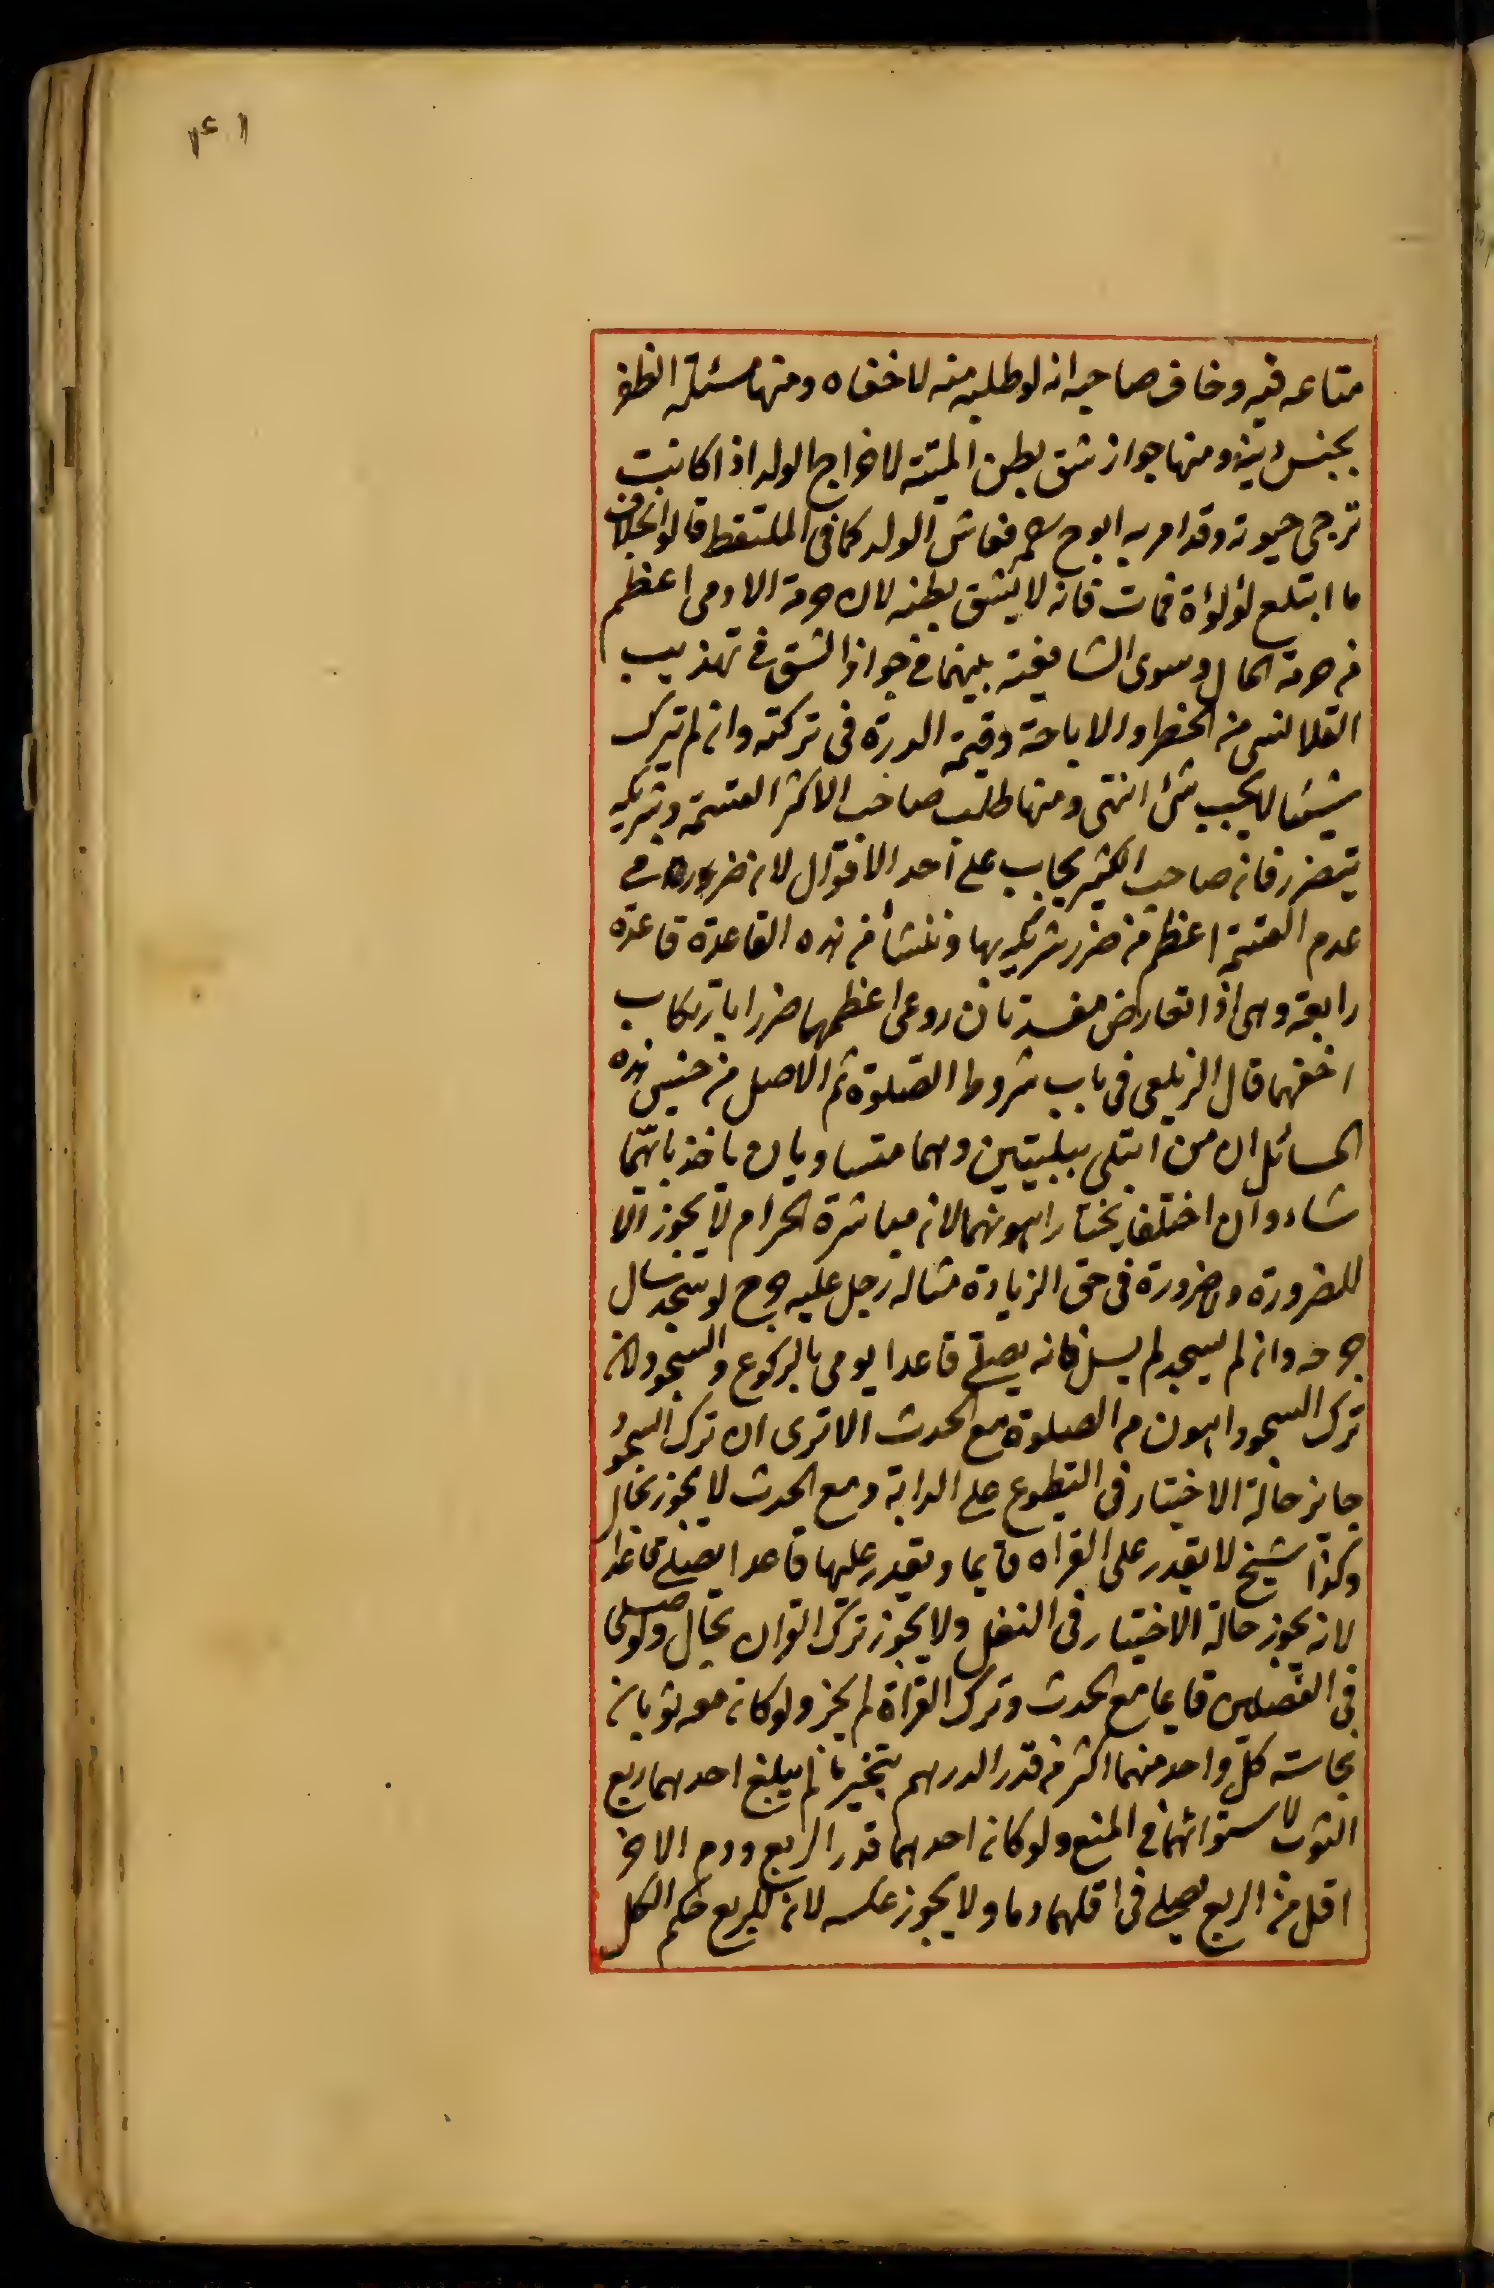 متاعه فيه وخاف صاحبه انه لو طلبه منه لاخفاه ومنها مسئلة الظفر
بجنس دينه ومنها جواز شق بطن الميتة لاخراج الولد اذا كانت
ترجى حيوته وقد امر به ابو ح فعاش الولد كما فى الملتقط قالوا بخلاف
ما ابتلع لؤلؤة فمات فانه لا يشق بطنه لان حرمة الادمى اعظم
من حرمة المال وسوى الشافعية بينهما فى جواز الشق فى تهذيب
القلانسى من الحظر والاباحة وقيمة الدرة فى تركته وان لم يترك
شيئا لا يجب شئ انتهى ومنها طلب صاحب الاكثر القسمة وشريكه
يتضرر فان صاحب الكثير يجاب على احد الاقوال لان ضرره فى
عدم القسمة اعظم من ضرر شريكه بها وننشأ من هذه القاعدة قاعدة
رابعة وهى اذا تعارض مفسدتان روعى اعظمهما ضررا بارتكاب
اخفهما قال الزيلعى فى باب شروط الصلوة ثم الاصل من جنس هذه
المسائل ان من ابتلى ببليتين وهما متساويان ياخذ بايتهما
شاء وان اختلفا يختار اهونهما لان مباشرة الحرام لا يجوز الا
للضرورة ولا ضرورة فى حق الزيادة مثاله رجل عليه جرح لو سجد سال
جرحه وان لم يسجد لم يسل فانه يصلى قاعدا يومى بالركوع والسجود لان
ترك السجود اهون من الصلوة مع الحدث الا ترى ان ترك السجود
جايز حالة الاختيار فى التطوع على الدابة ومع الحدث لا يجوز بحال
وكذا شيخ لا يقدر على القراه قايما ويقدر عليها قاعدا يصلى قاعدا
لانه يجوز حالة الاختيار فى النفل ولا يجوز ترك القران بحال ولو صلى
فى الفصلين قايما مع الحدث وترك القراة لم يجز ولو كان معه ثوبان
نجاسته كل واحد منهما اكثر من قدر الدرهم يتخير ما لم يبلغ احدهما ربع
الثوب لاستوائهما فى المنع ولو كان احدهما قدر الربع ودم الاخر
اقل من الربع يصلى فى اقلهما دما ولا يجوز عكسه لان للربع حكم الكل